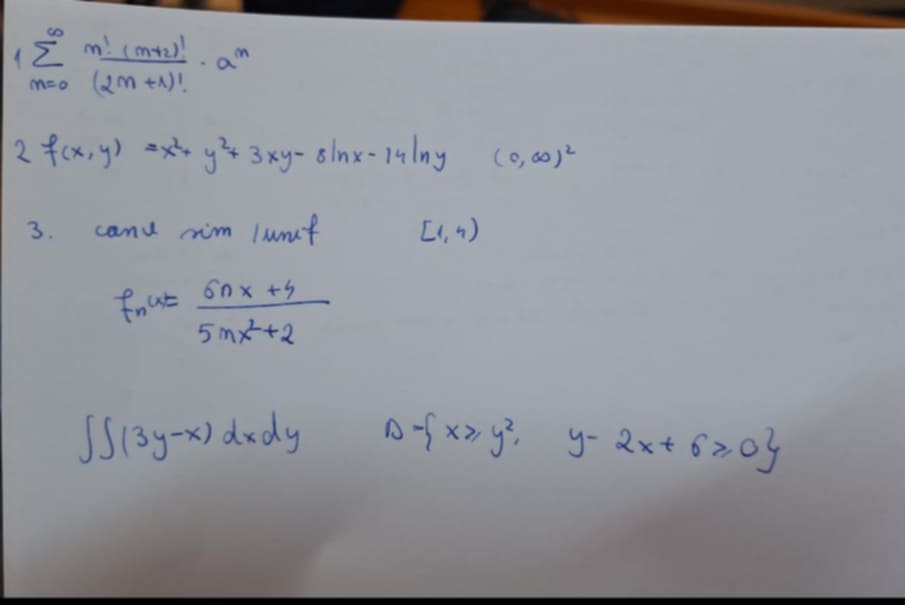 1 ∑_{n=0}^{∞} n! (n+2)! / (2n+1)! · aⁿ
2 f(x,y) = x² + y² + 3xy - 8lnx - 14lny (0,∞)²
3. sim / unif [1,4)
fₙ(x) = 6nx + 4 / 5nx² + 2
∫∫(3y-x) dxdy D = { x ≥ y², y - 2x + 6 ≥ 0}